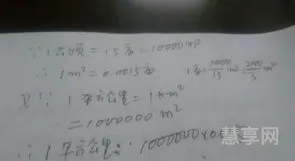 ∵ 1公顷 = 15亩 = 10000m²
∴ 1m² = 0.0015亩 1亩 = 10000/15 m² = 2000/3 m²
又∵ 1平方公里 = 1km²
= 1000000 m²
∴ 1平方公里 = 1000000 × 0.
慧享网
www.